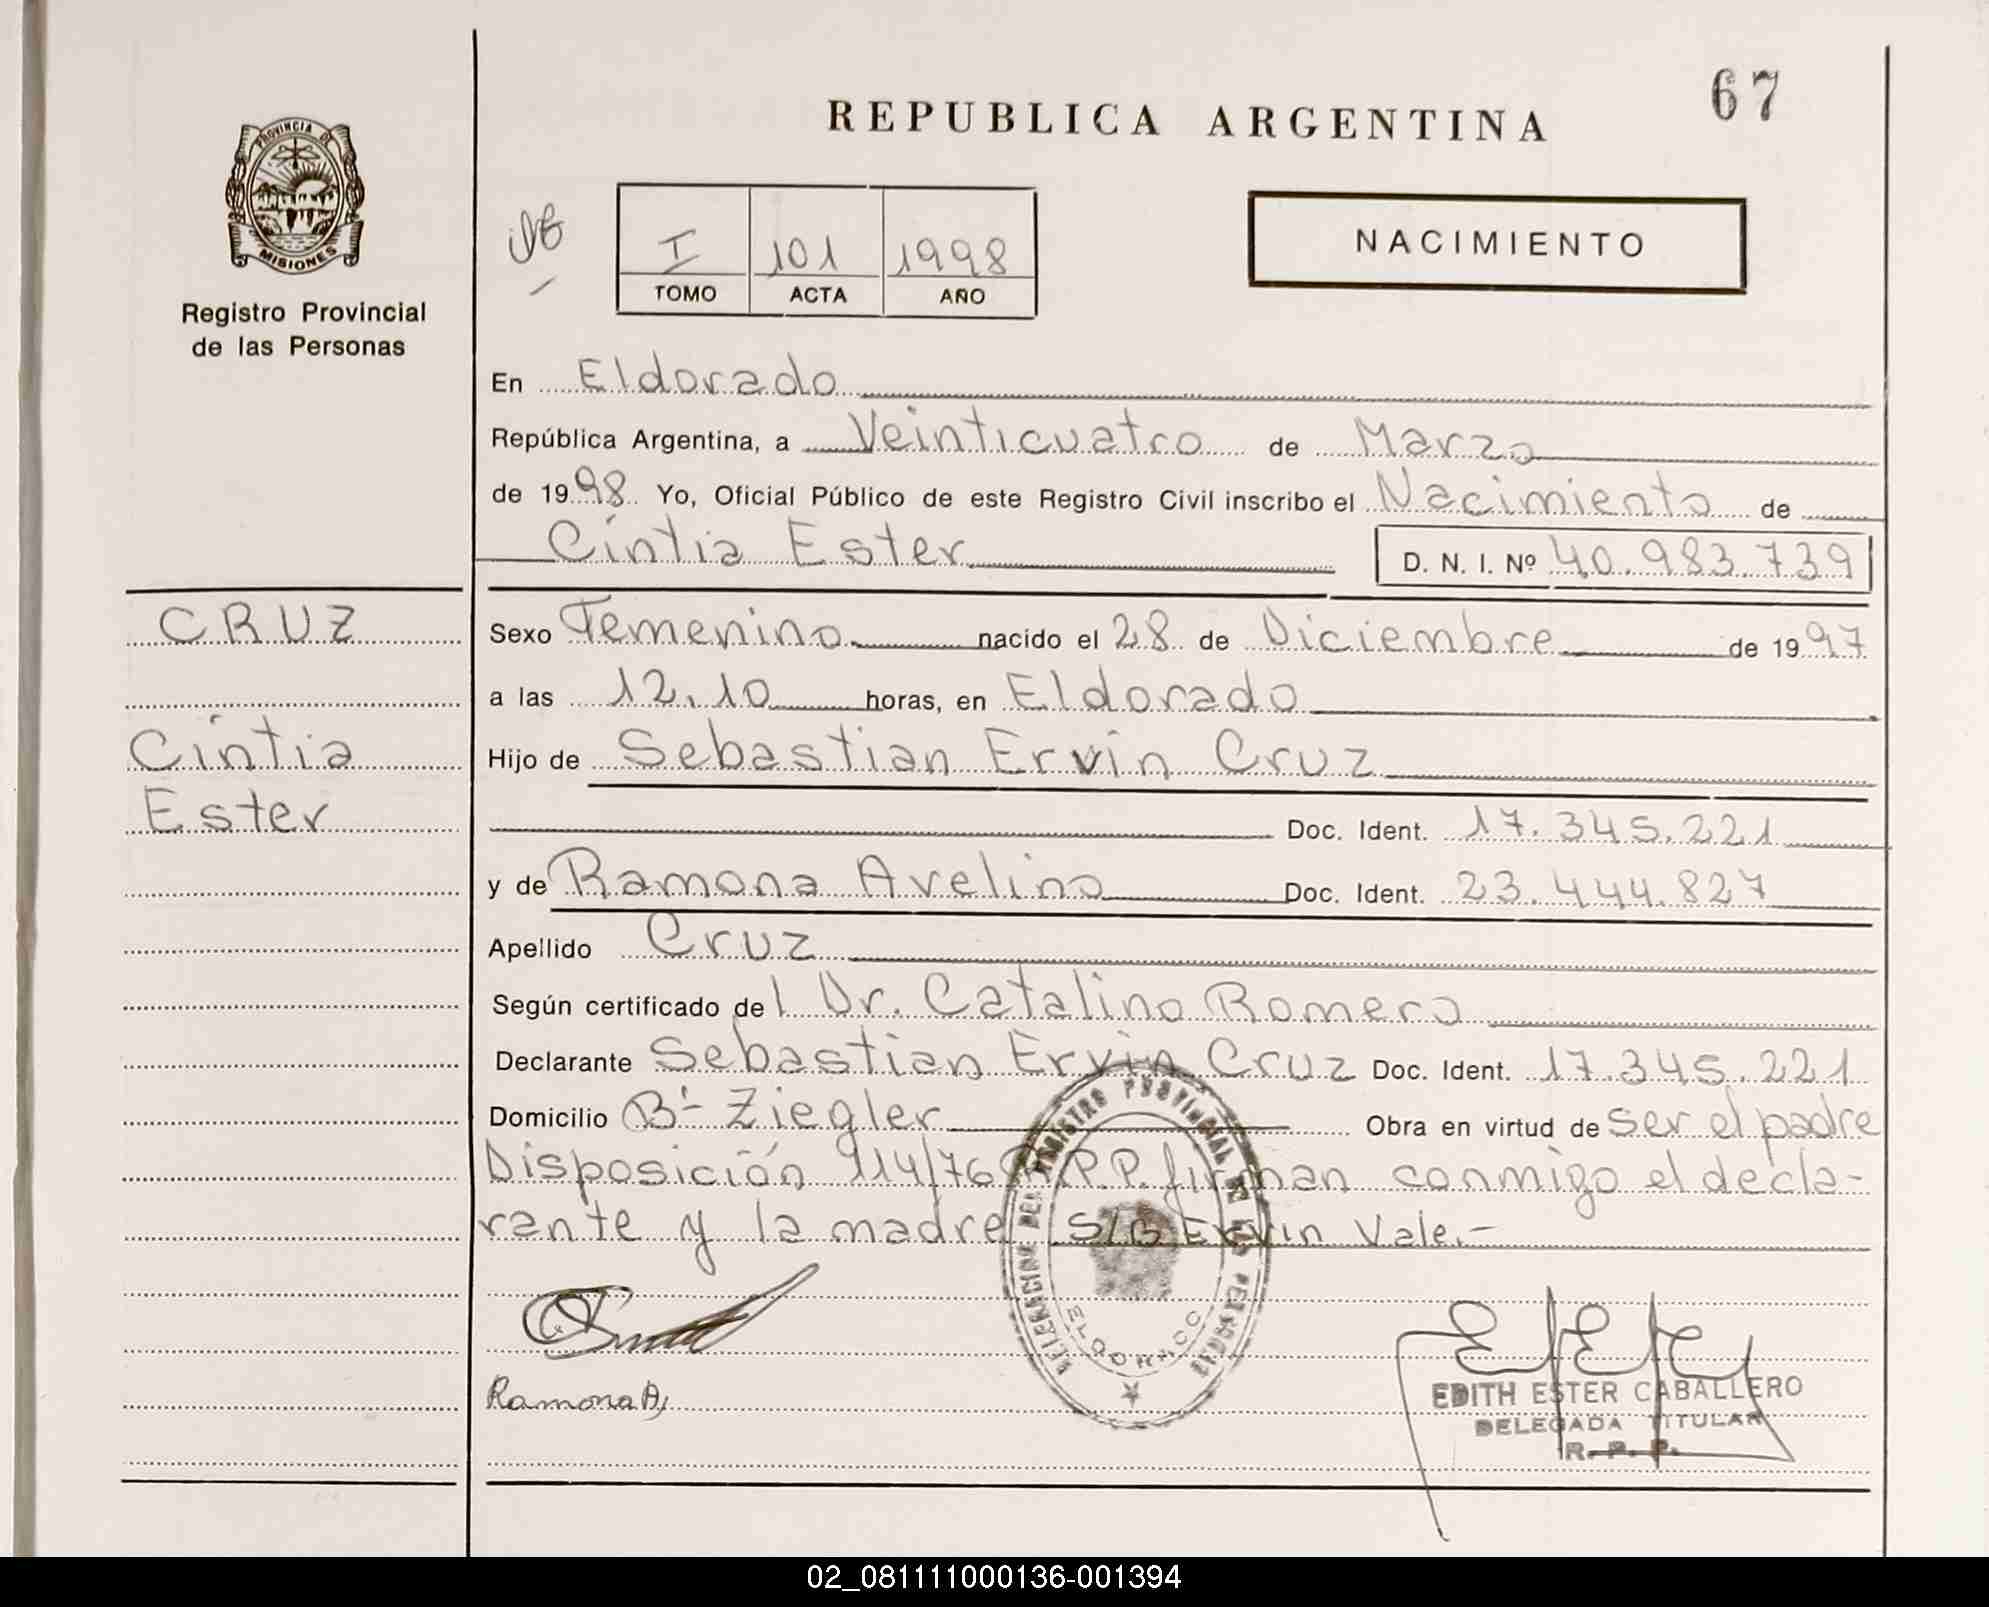 67
REPUBLICA ARGENTINA
PROVINCIA DE
MISIONES
Registro Provincial
de las Personas
NACIMIENTO
I 101 1998
TOMO ACTA AÑO
En Eldorado
República Argentina, a Veinticuatro de Marzo
de 1998 Yo, Oficial Público de este Registro Civil inscribo el Nacimiento de
Cintia Ester D. N. I. Nº 40.983.739
CRUZ
Cintia
Ester
Sexo Femenino nacido el 28 de Diciembre de 1997
a las 12.10 horas, en Eldorado
Hijo de Sebastian Ervin Cruz
Doc. Ident. 17.345.221
y de Ramona Avelino Doc. Ident. 23.444.827
Apellido Cruz
Según certificado del Dr. Catalino Romero
Declarante Sebastian Ervin Cruz Doc. Ident. 17.345.221
Domicilio Bº Ziegler Obra en virtud de ser el padre
Disposición 114/76 R.P.P. firman conmigo el decla-
rante y la madre S/B Ervin Vale.-
Ramona A,
DELEGACION DEL REGISTRO PROVINCIAL DE LAS PERSONAS
ELDORADO
EDITH ESTER CABALLERO
DELEGADA TITULAR
R. P. P.
02_081111000136-001394